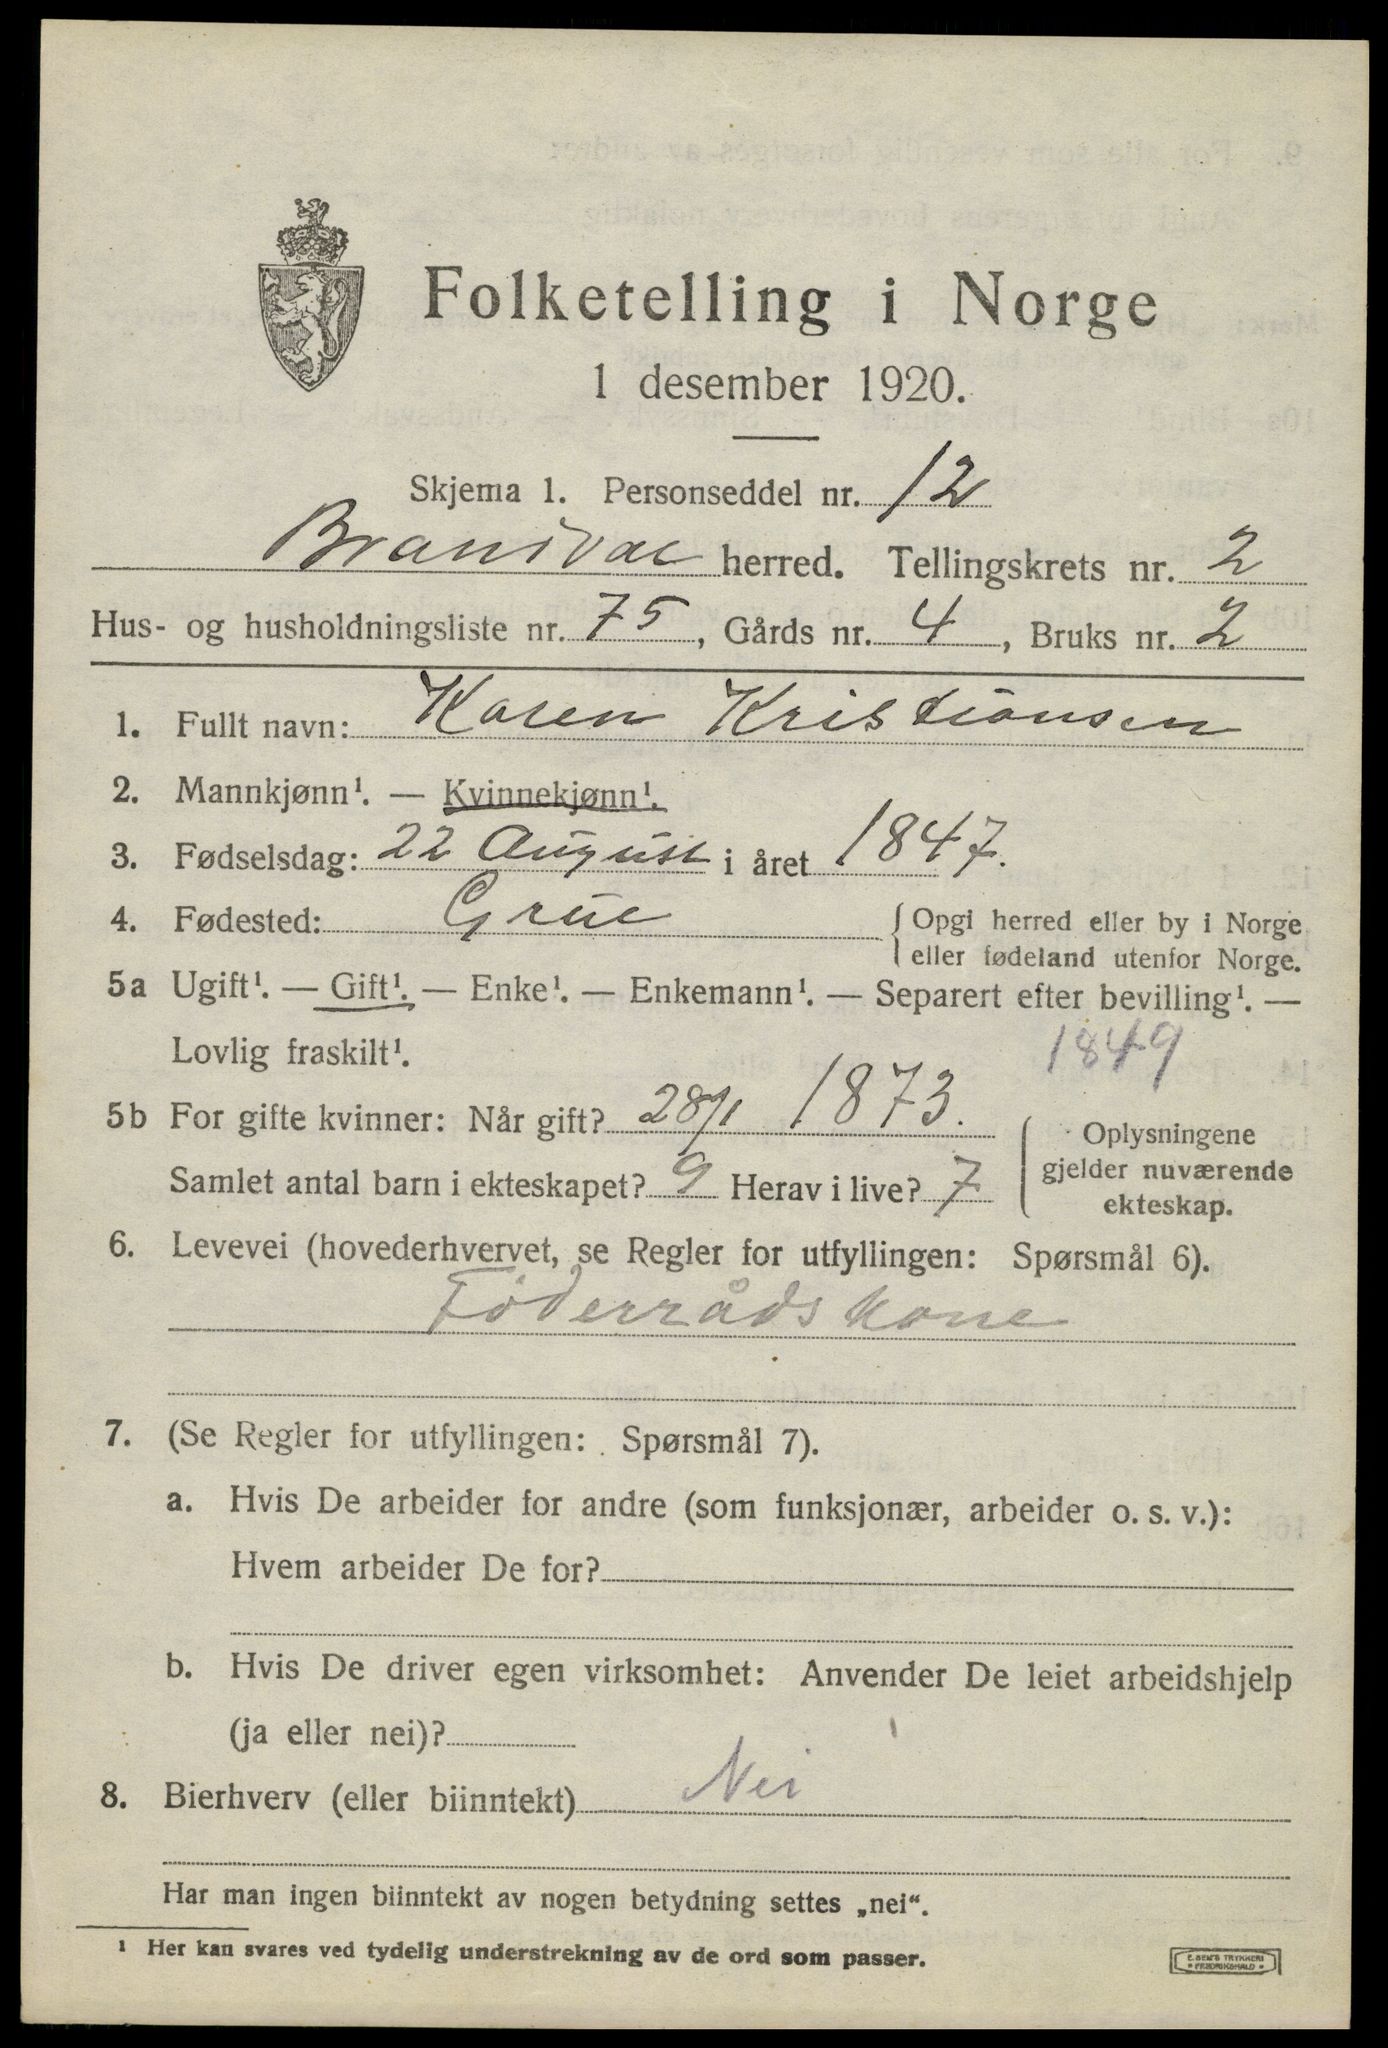 Folketelling i Norge
1 desember 1920.
Skjema 1. Personseddel nr. 12
Brandval herred. Tellingskrets nr. 2
Hus- og husholdningsliste nr. 75, Gårds nr. 4, Bruks nr. 2
1. Fullt navn: Karen Kristiansen
2. Mannkjønn¹. — Kvinnekjønn¹.
3. Fødselsdag: 22 August i året 1847.
4. Fødested: Grue { Opgi herred eller by i Norge
eller fødeland utenfor Norge.
5a Ugift¹. — Gift¹. — Enke¹. — Enkemann¹. — Separert efter bevilling¹. —
Lovlig fraskilt¹. 1849
5b For gifte kvinner: Når gift? 28/1 1873.
Samlet antal barn i ekteskapet? 9 Herav i live? 7
{ Oplysningene
gjelder nuværende
ekteskap.
6. Levevei (hovederhvervet, se Regler for utfyllingen: Spørsmål 6).
Föderrådskone
7. (Se Regler for utfyllingen: Spørsmål 7).
a. Hvis De arbeider for andre (som funksjonær, arbeider o. s. v.):
Hvem arbeider De for?
b. Hvis De driver egen virksomhet: Anvender De leiet arbeidshjelp
(ja eller nei)?
8. Bierhverv (eller biinntekt) Nei
Har man ingen biinntekt av nogen betydning settes „nei“.
¹ Her kan svares ved tydelig understrekning av de ord som passer.
E. SEM'S TRYKKERI
FREDRIKSHALD